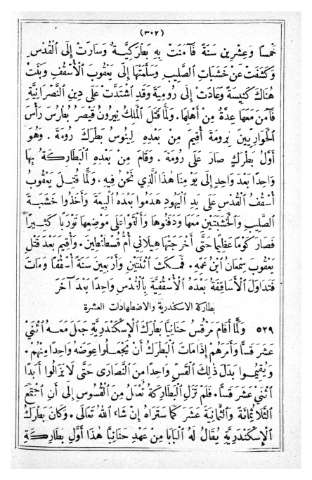 (٣٠٢)
خمسًا وعشرين سنة فآمنت به بطاركيّة وسارت إلى القدس
وكشفت عن خشبات الصليب وسلّمتها إلى يعقوب الأسقف وبنت
هناك كنيسة وعادت إلى رومية وقد اشتدّت على دين النصرانية
فآمن معها عدّة من أهلها. ولمّا قتل الملك نيرون قيصر بطرس رأس
الحواريين برومة أقيم من بعده لينوس بطرك رومة. وهو
أوّل بطرك صار على رومة. وقام من بعده البطاركة بها
واحدًا بعد واحد إلى يومنا هذا الذي نحن فيه. ولمّا قتل يعقوب
أسقف القدس على يد اليهود هدموا بعده البيعة وأخذوا خشبة
الصليب والخشبتين معها ودفنوها وألقوا على موضعها ترابًا كثيرًا
فصار كومًا عظيمًا حتّى أخرجتها هيلاني أمّ قسطنطين. وأقيم بعد قتل
يعقوب سمعان ابن عمه. فمكث اثنتين وأربعين سنة أسقفًا ومات
فتداول الأساقفة بعده الأسقفية بالقدس واحدًا بعد آخر
بطاركة الاسكندرية والاضطهادات العشرة
٥٢٩ ولمّا أقام مرقس حنانيا بطرك الإسكندرية جعل معه اثني
عشر قسًّا وأمرهم إذا مات البطرك أن يجعلوا عوضه واحدًا منهم.
ويقيموا بدل ذلك القس واحدًا من النصارى حتّى لا يزالوا أبدًا
اثني عشر قسًّا. فلم تزل البطاركة تعمل من القسوس إلى أن اجتمع
الثلاثمائة والثمانية عشر كما ستراه إن شاء الله تعالى. وكان بطرك
الإسكندرية يقال له البابا من عهد حنانيا هذا أوّل بطاركة